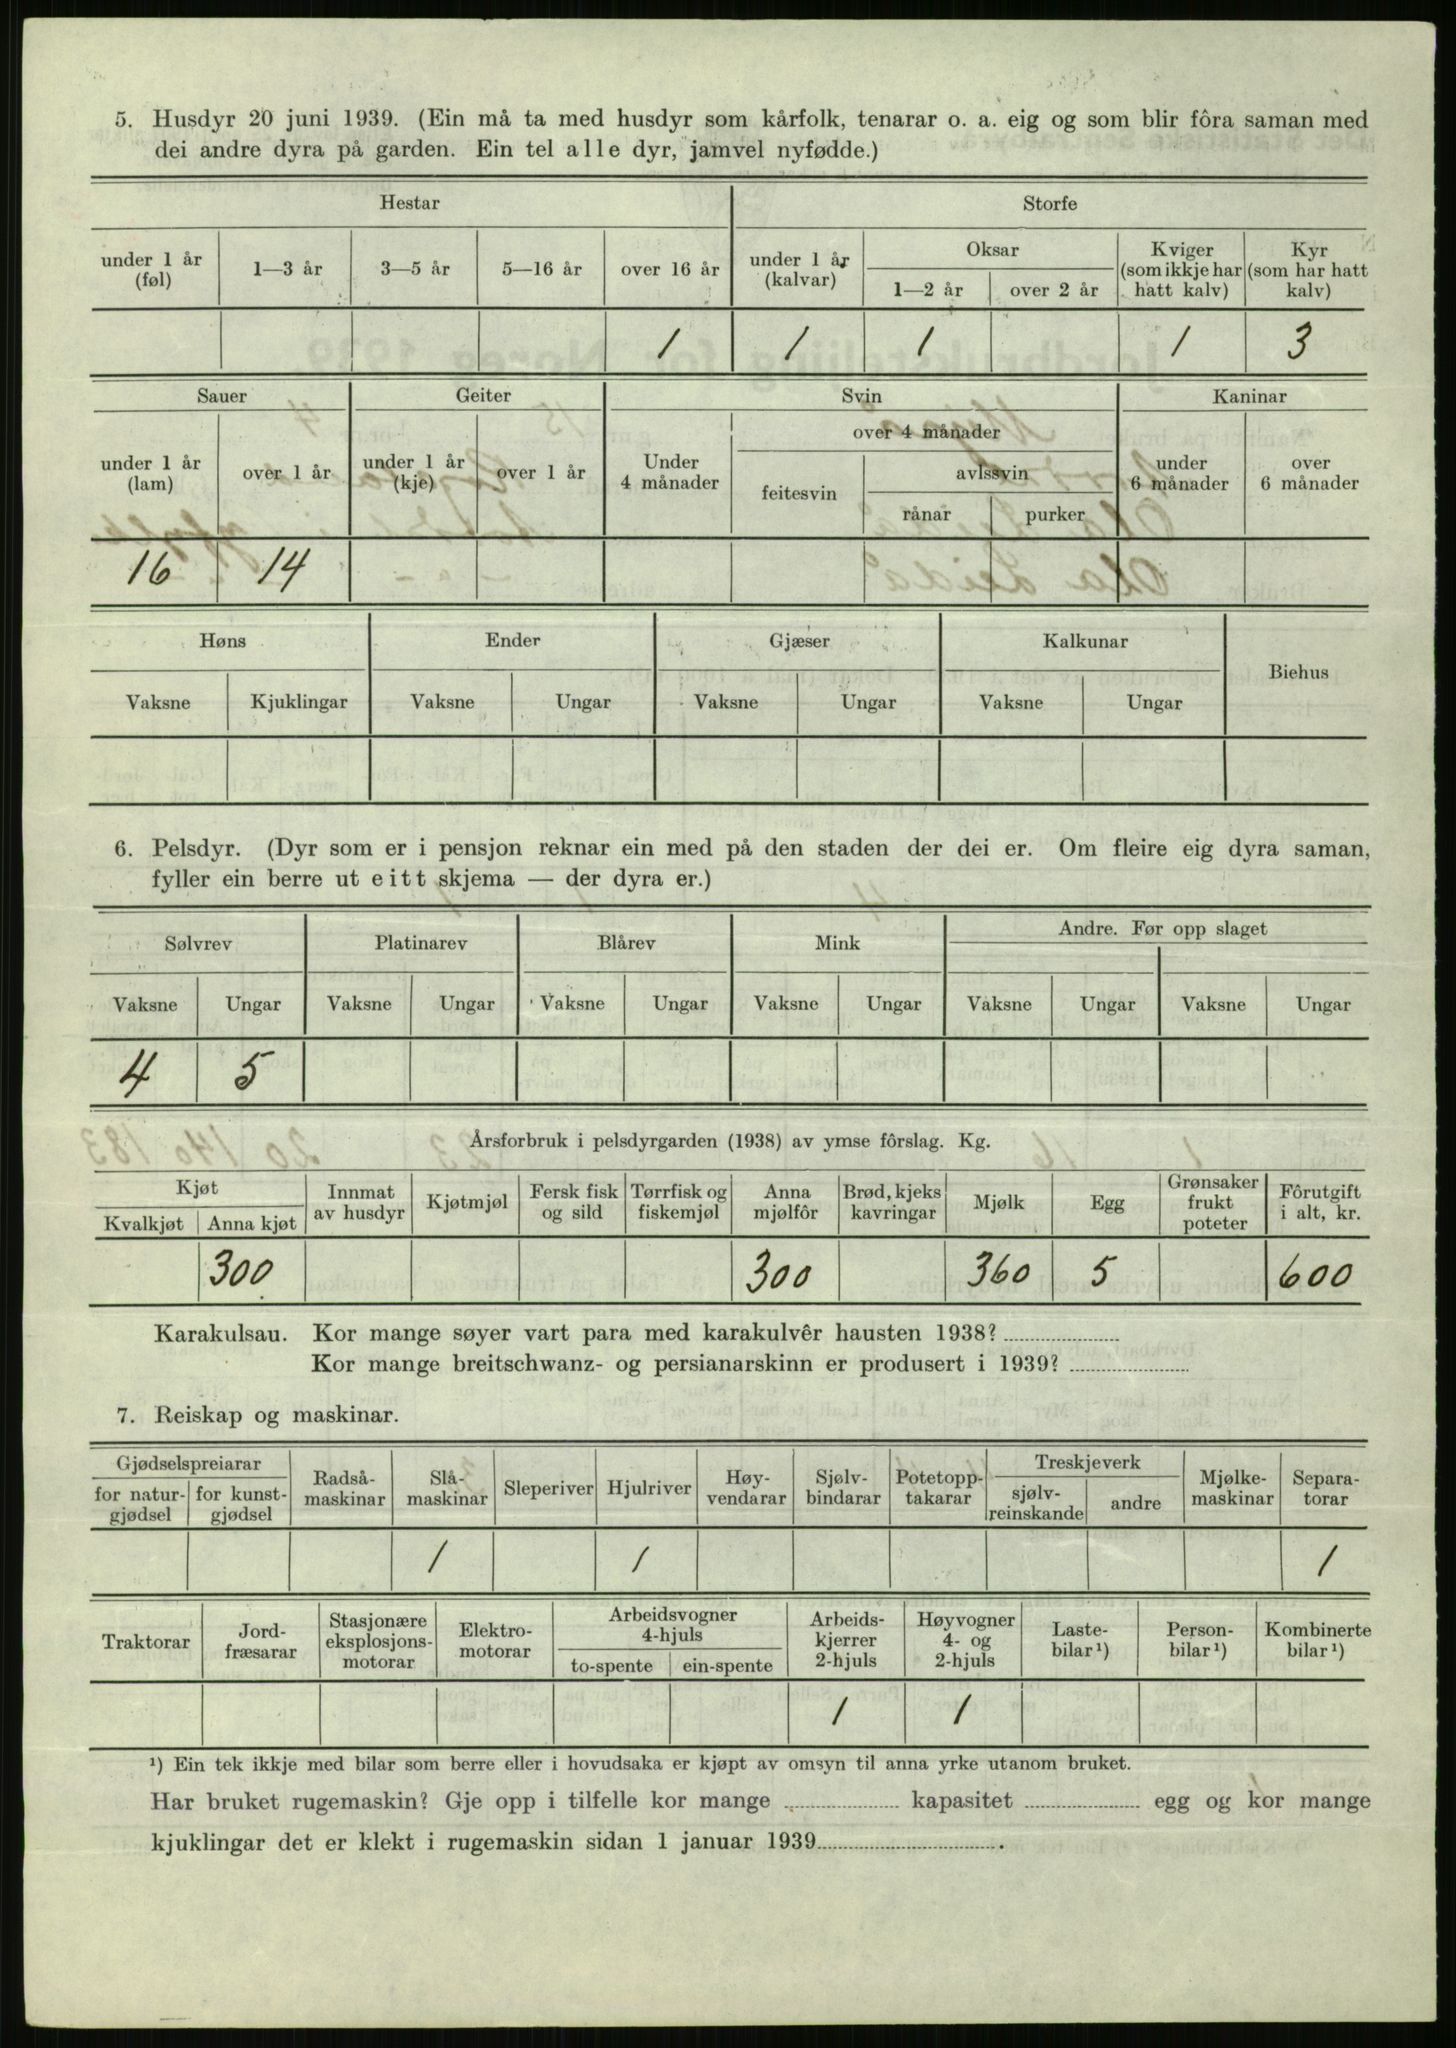 5. Husdyr 20 juni 1939. (Ein må ta med husdyr som kårfolk, tenarar o. a. eig og som blir fôra saman med
dei andre dyra på garden. Ein tel alle dyr, jamvel nyfødde.)
Hestar Storfe
under 1 år (føl) 1—3 år 3—5 år 5—16 år over 16 år under 1 år (kalvar) Oksar 1—2 år over 2 år Kviger (som ikkje har hatt kalv) Kyr (som har hatt kalv)
1 1 1 1 3
Sauer Geiter Svin Kaninar
over 4 månader
under 1 år (lam) over 1 år under 1 år (kje) over 1 år Under 4 månader feitesvin avlssvin rånar purker under 6 månader over 6 månader
16 14
Høns Ender Gjæser Kalkunar Biehus
Vaksne Kjuklingar Vaksne Ungar Vaksne Ungar Vaksne Ungar
6. Pelsdyr. (Dyr som er i pensjon reknar ein med på den staden der dei er. Om fleire eig dyra saman,
fyller ein berre ut eitt skjema — der dyra er.)
Sølvrev Platinarev Blårev Mink Andre. Før opp slaget
Vaksne Ungar Vaksne Ungar Vaksne Ungar Vaksne Ungar Vaksne Ungar Vaksne Ungar
4 5
Årsforbruk i pelsdyrgarden (1938) av ymse fôrslag. Kg.
Kjøt Kvalkjøt Anna kjøt Innmat av husdyr Kjøtmjøl Fersk fisk og sild Tørrfisk og fiskemjøl Anna mjølfôr Brød, kjeks kavringar Mjølk Egg Grønsaker frukt poteter Fôrutgift i alt, kr.
300 300 360 5 600
Karakulsau. Kor mange søyer vart para med karakulvêr hausten 1938?
Kor mange breitschwanz- og persianarskinn er produsert i 1939?
7. Reiskap og maskinar.
Gjødselspreiarar for natur-gjødsel for kunst-gjødsel Radså-maskinar Slå-maskinar Sleperiver Hjulriver Høy-vendarar Sjølv-bindarar Potetopp-takarar Treskjeverk sjølv-reinskande andre Mjølke-maskinar Separa-torar
1 1 1
Traktorar Jord-fræsarar Stasjonære eksplosjons-motorar Elektro-motorar Arbeidsvogner 4-hjuls to-spente ein-spente Arbeids-kjerrer 2-hjuls Høyvogner 4- og 2-hjuls Laste-bilar ¹) Person-bilar ¹) Kombinerte bilar ¹)
1 1
¹) Ein tek ikkje med bilar som berre eller i hovudsaka er kjøpt av omsyn til anna yrke utanom bruket.
Har bruket rugemaskin? Gje opp i tilfelle kor mange kapasitet egg og kor mange
kjuklingar det er klekt i rugemaskin sidan 1 januar 1939.